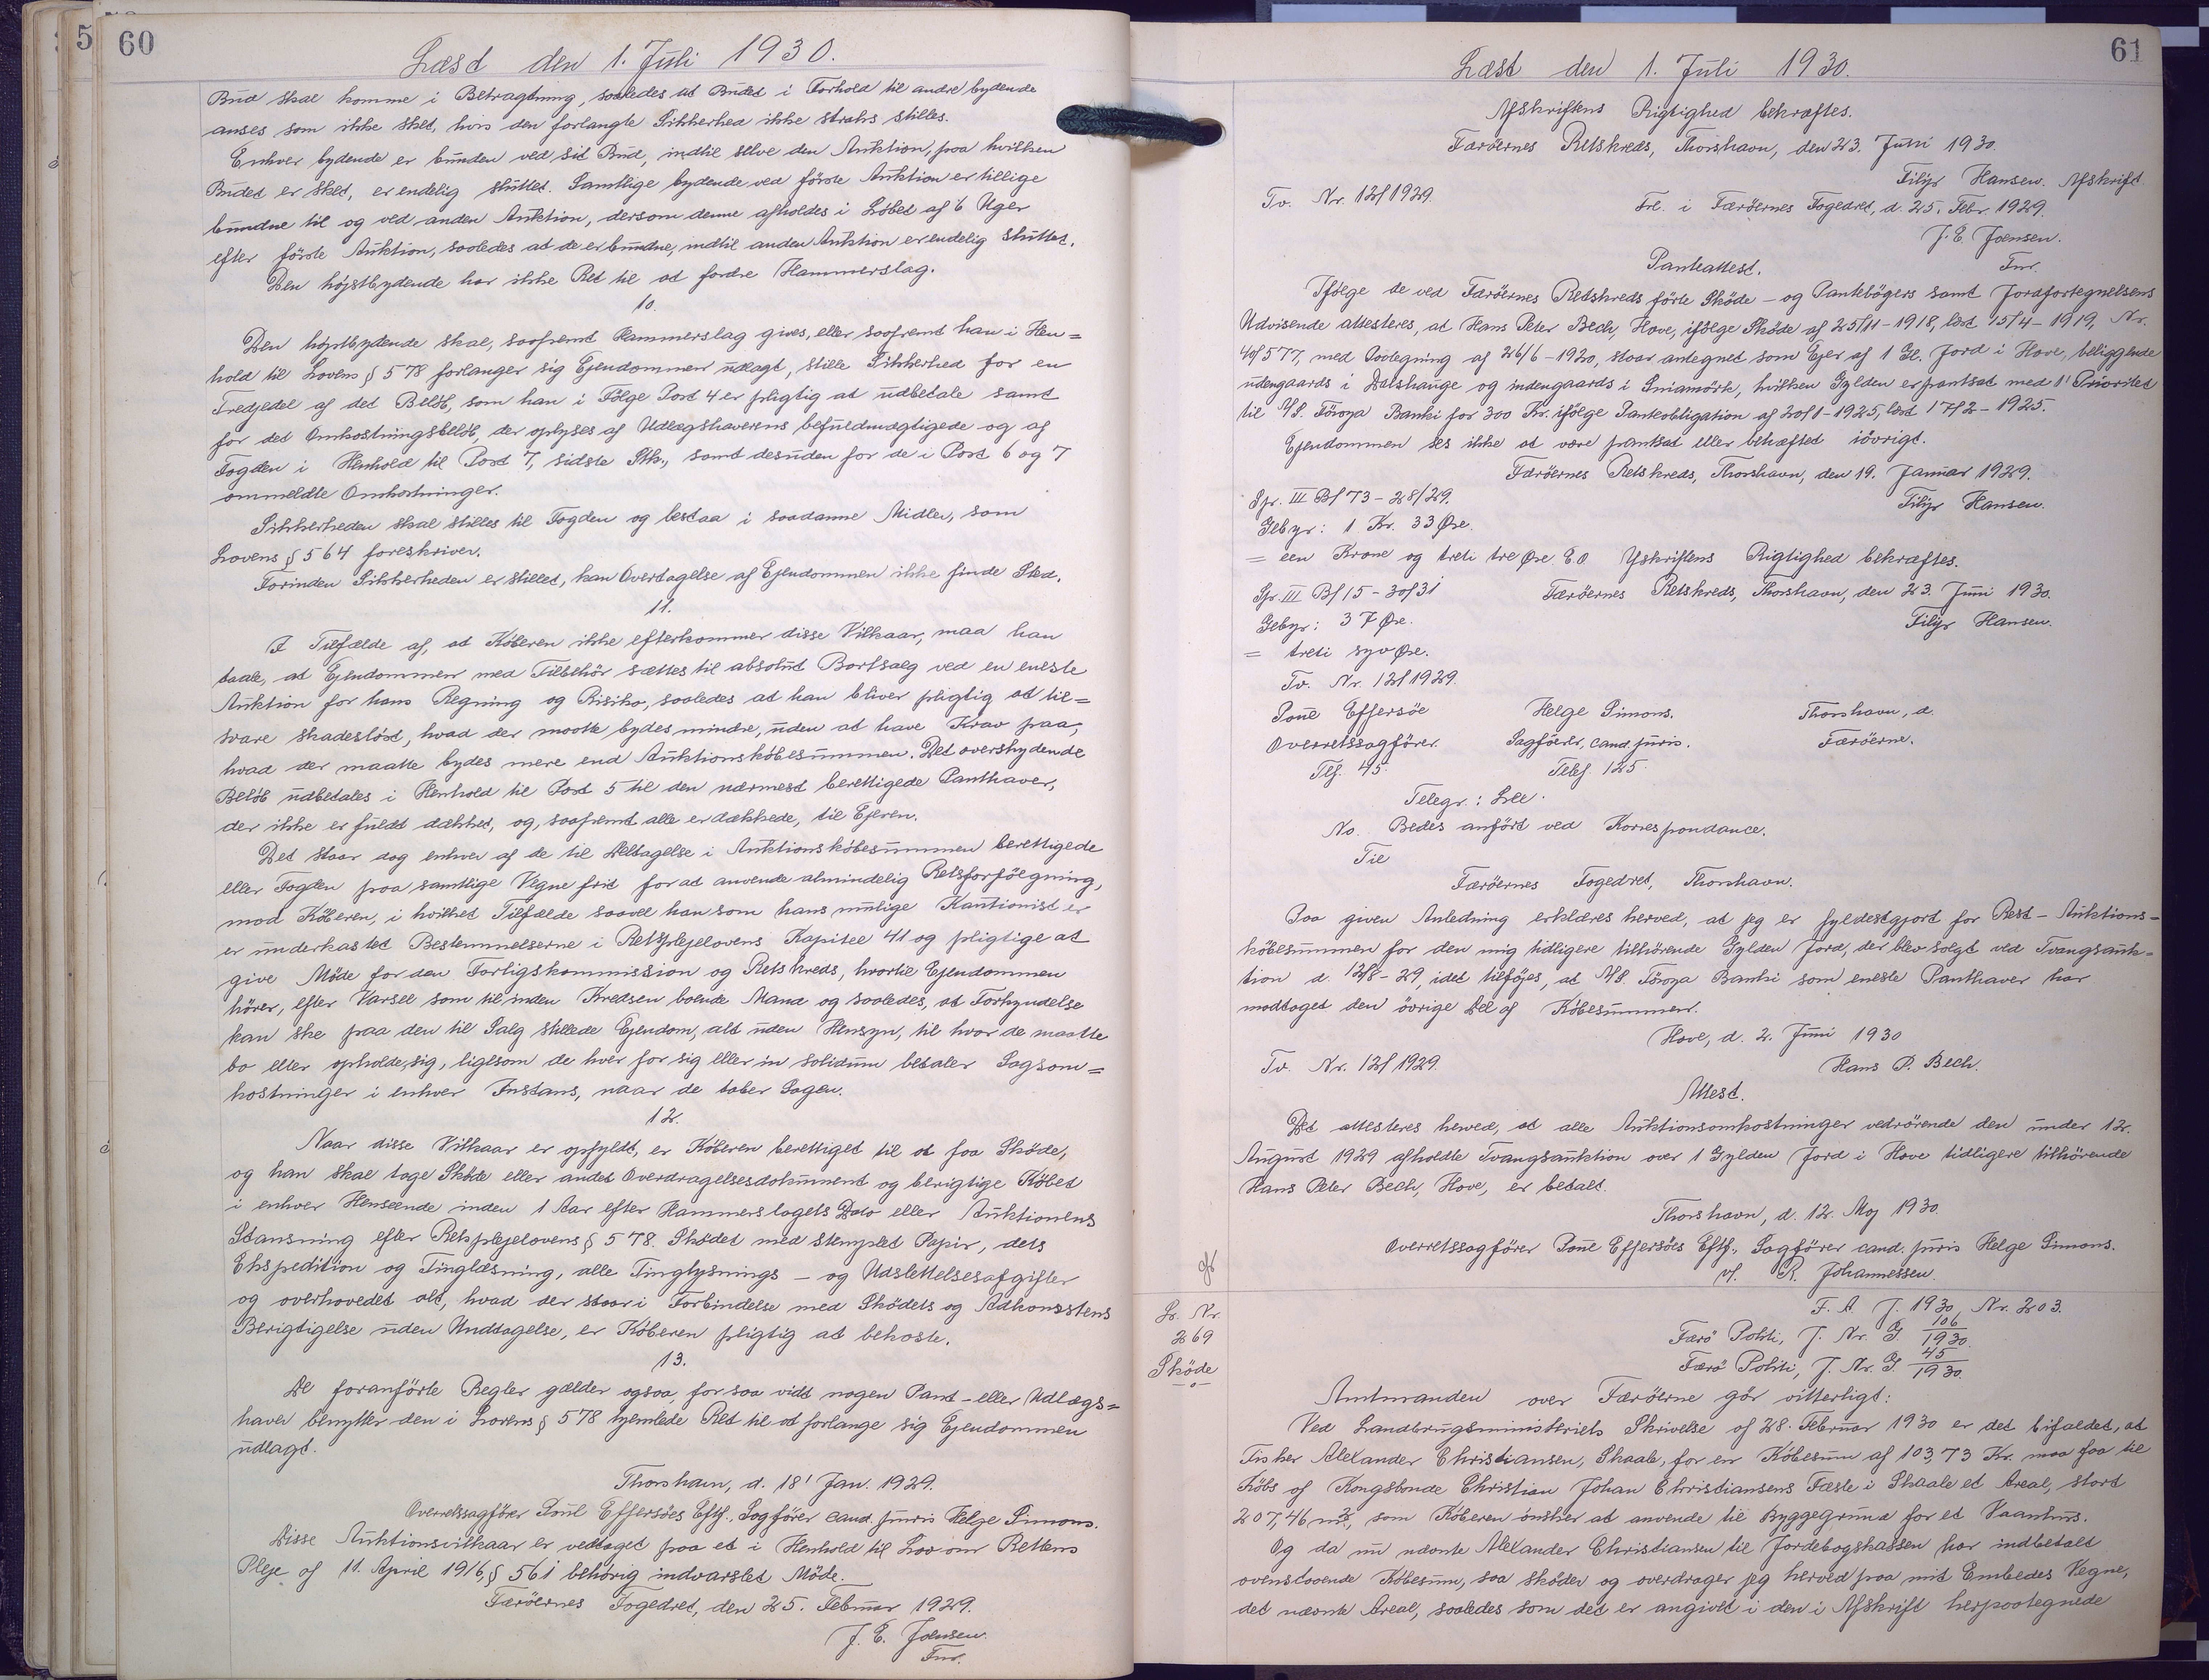 60
Læst den 1. Juli 1930.
Bud skal komme i Betragtning, saaledes at Budet i Forhold til andre bydende
anses som ikke sket, hvis den forlangte Sikkerhed ikke straks stilles.
Enhver bydende er bunden ved sit Bud, indtil selve den Auktion, paa hvilken
Budet er sket, er endelig sluttet. Samtlige bydende ved förste Auktion er tillige
bundne til og ved anden Auktion, dersom denne afholdes i Löbet af 6 Uger
efter förste Auktion, saaledes at de er bundne, indtil anden Auktion er endelig sluttet.
Den höjstbydende har ikke Ret til at fordre Hammerslag.
10.
Den höjstbydende skal, saafremt Hammerslag gives, eller saafremt han i Hen=
hold til Lovens § 578 forlanger sig Ejendommen udlagt, stille Sikkerhed for en
Tredjedel af det Belöb, som han i Fölge Post 4 er pligtig at udbetale samt
for det Omkostningsbelöb, der oplyses af Udlægshaverens befuldmægtigede og af
Fogden i Henhold til Post 7, sidste Stk., samt desuden for de i Post 6 og 7
ommeldte Omkostninger.
Sikkerheden skal stilles til Fogden og bestaa i saadanne Midler, som
Lovens § 564 foreskriver.
Forinden Sikkerheden er stillet, kan Overtagelse af Ejendommen ikke finde Sted.
11.
I Tilfælde af, at Köberen ikke efterkommer disse Vilkaar, maa han
taale, at Ejendommen med Tilbehör sættes til absolut Bortsalg ved en eneste
Auktion for hans Regning og Risiko, saaledes at han bliver pligtig at til=
svare skadeslöst, hvad der maatte bydes mindre, uden at have Krav paa,
hvad der maatte bydes mere end Auktionsköbesummen. Det overskydende
Belöb udbetales i Henhold til Post 5 til den nærmest berettigede Panthaver,
der ikke er fuldt dækket, og, saafremt alle er dækkede, til Ejeren.
Det staar dog enhver af de til Deltagelse i Auktionsköbesummen berettigede
eller Fogden paa samtlige Vegne frit for at anvende almindelig Retsforfölgning,
mod Köberen, i hvilket Tilfælde saavel han som hans mulige Kautionist er
er underkastet Bestemmelserne i Retsplejelovens Kapitel 41 og pligtige at
give Möde for den Forligskommission og Retskreds, hvortil Ejendommen
hörer, efter Varsel som til inden Kredsen boende Mand og saaledes, at Forkyndelse
kan ske paa den til Salg stillede Ejendom, alt uden Hensyn, til hvor de maatte
bo eller opholde sig, ligesom de hver for sig eller in solidum betaler Sagsom=
kostninger i enhver Instans, naar de taber Sagen.
12.
Naar disse Vilkaar er opfyldt, er Köberen berettiget til at faa Sköde,
og han skal tage Sköde eller andet Overdragelsesdokument og berigtige Köbet
i enhver Henseende inden 1 Aar efter Hammerslagets Dato eller Auktionens
Slutning efter Retsplejelovens § 578. Sködet med stemplet Papir, dets
Ekspedition og Tinglæsning, alle Tinglysnings - og Udslettelsesafgifter
og overhovedet alt, hvad der staar i Forbindelse med Sködets og Adkomstens
Berigtigelse uden Undtagelse, er Köberen pligtig at bekoste.
13.
De foranförte Regler gælder ogsaa, for saa vidt nogen Pant - eller Udlægs=
haver benytter den i Lovens § 578 hjemlede Ret til at forlange sig Ejendommen
udlagt.
Thorshavn, d. 18' Jan. 1929.
Overretssagförer Poul Effersöes Eftf., Sagförer cand. juris Helge Simons.
Disse Auktionsvilkaar er vedtaget paa et i Henhold til Lov om Rettens
Pleje af 11. April 1916, § 561 behörig indvarslet Möde.
Færöernes Fogedret, den 25. Februar 1929.
J. E. Joensen.
Fnr.
61
Læst den 1. Juli 1930.
Afskriftens Rigtighed bekræftes.
Færöernes Retskreds, Thorshavn, den 23. Juni 1930.
Filip Hansen. Afskrift.
Tv. Nr. 12/1929.
Frl. i Færöernes Fogedret, d. 25. Febr. 1929.
J. E. Joensen.
Fnr.
Panteattest.
Ifölge de ved Færöernes Retskreds förte Sköde - og Pantebögers samt Jordfortegnelsens
Udvisende attesteres, at Hans Peter Bech, Hove, ifölge Sköde af 25/11 - 1918, læst 15/4 - 1919, Nr.
40/577, med Paategning af 26/6 - 1920, staar antegnet som Ejer af 1 Gl. Jord i Hove, beliggende
udengaards i Dalshauge og indengaards i Sniamörk, hvilken Gylden er pantsat med 1' Prioritet
til A/S. Föroya Banki for 300 Kr. ifölge Panteobligation af 20/1 - 1925, læst 17/2 - 1925.
Ejendommen ses ikke at være pantsat eller behæftet iövrigt.
Færöernes Retskreds, Thorshavn, den 19. Januar 1929.
Spr. III B/ 73 - 28/29.
Filip Hansen.
Gebyr: 1 Kr. 33 Øre.
= een Krone og treti tre Øre E.O Afskriftens Rigtighed bekræftes.
Spr. III B/ 15 - 30/31
Færöernes Retskreds, Thorshavn, den 23. Juni 1930.
Gebyr: 37 Øre.
Filip Hansen.
= treti syv Øre.
Tv. Nr. 12/1929.
Poul Effersöe Helge Simons. Thorshavn, d.
Overretssagförer. Sagförer, cand. juris. Færöerne.
Tlf. 45. Telef 125.
Telegr.: Lee.
No. Bedes anfört ved Korrespondance.
Til
Færöernes Fogedret, Thorshavn.
Paa given Anledning erklæres herved, at jeg er fyldestgjort for Rest - Auktions=
köbesummen for den mig tidligere tilhörende Gylden Jord, der blev solgt ved Tvangsauk=
tion d. 12/8 - 29, idet tilföjes, at A/S. Föroya Banki som eneste Panthaver har
modtaget den övrige Del af Köbesummen.
Hove, d. 2. Juni 1930
Tv. Nr. 12/1929.
Hans P. Bech.
Attest.
Det attesteres herved, at alle Auktionsomkostninger vedrörende den under 12.
August 1929 afholdte Tvangsauktion over 1 Gylden Jord i Hove tidligere tilhörende
Hans Peter Bech, Hove, er betalt.
Thorshavn, d. 12. Maj 1930.
Overretssagförer Poul Effersöes Eftf., Sagförer cand. juris Helge Simons.
v/. R. Johannessen.
Lr. Nr.
269
Sköde
F. A. J. 1930, Nr. 203.
Færö Politi, J. Nr. G 106/1930.
Færö Politi, J. Nr. G 45/1930.
Amtmanden over Færöerne gör vitterligt:
Ved Landbrugsministeriets Skrivelse af 28. Februar 1930 er det bifaldet, at
Fisker Alexander Christiansen, Skaale, for en Köbesum af 103,73 Kr. maa faa til
Köbs af Kongsbonde Christian Johan Christiansens Fæste i Skaale et Areal, stort
207,46 m², som Köberen önsker at anvende til Byggegrund for et Vaanhus.
Og da nu nævnte Alexander Christiansen til Jordebogskassen har indbetalt
ovenstaaende Köbesum, saa sköder og overdrager jeg herved paa mit Embedes Vegne,
det nævnte Areal, saaledes som det er angivet i den i Afskrift herpaategnede